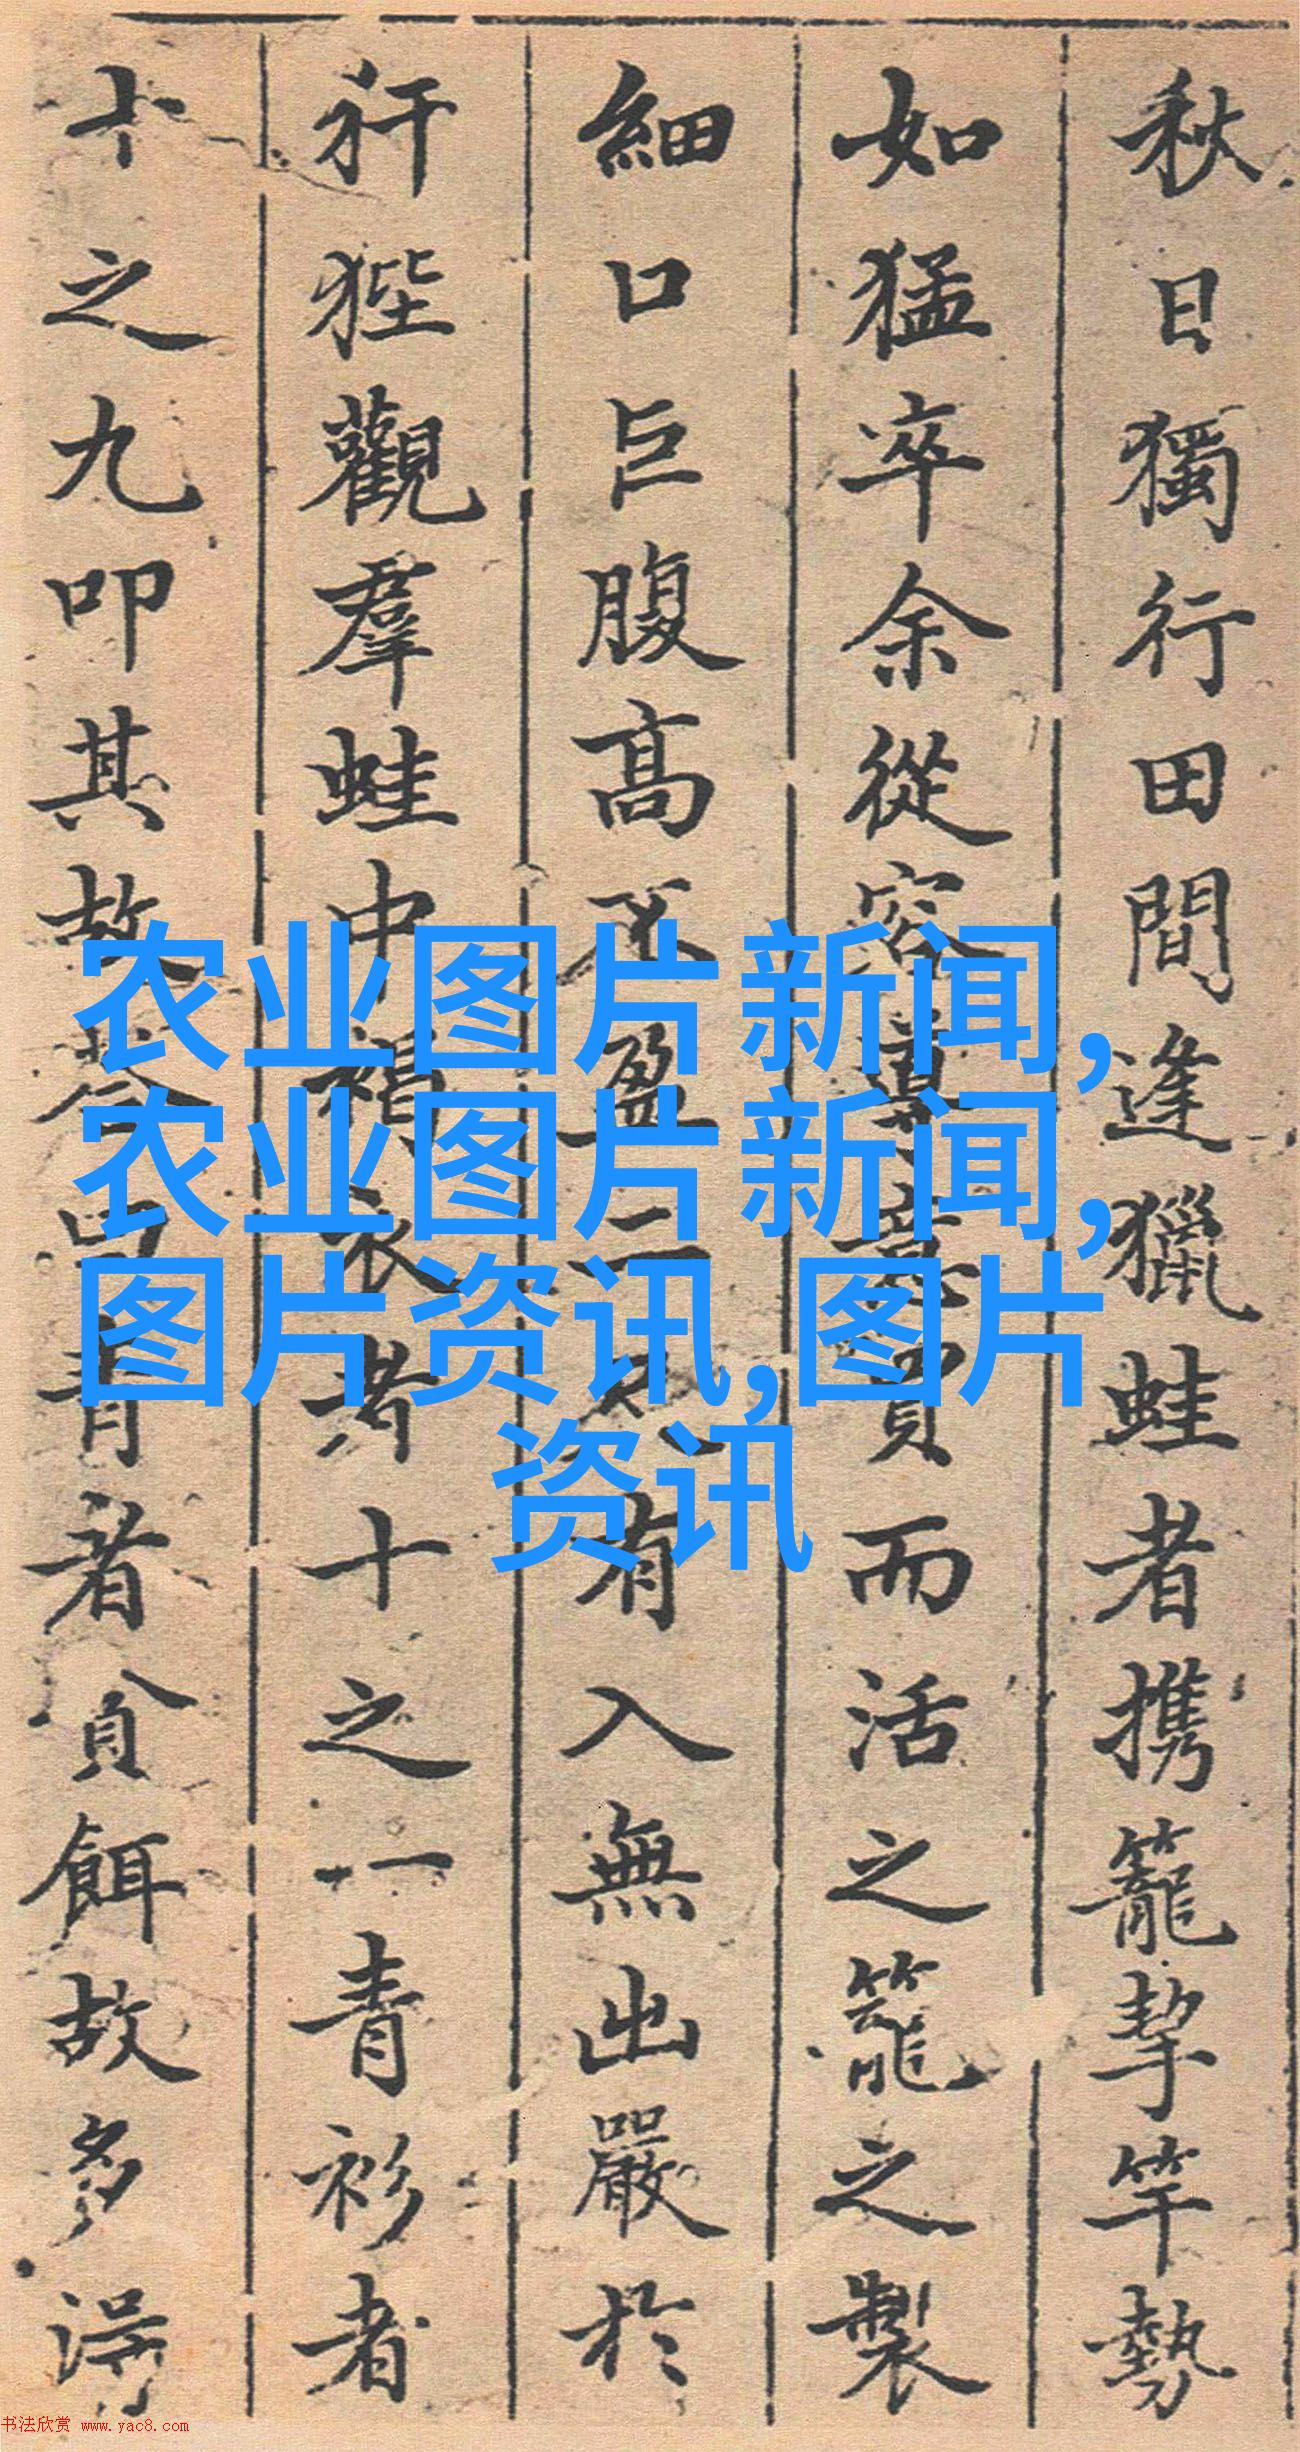 秋日獨行田間逢獵蛙者携籠挈竿勢
如猛卒余從容導意買而活之籠之製
細口巨腹高不盈二尺有入無出嚴於
犴狴觀羣蛙中褐衣者十之一青衫者
十之九叩其故答曰青者貪餌故多得
农业图片新闻,
农业图片新闻,
图片资讯,图片
资讯
书法欣赏 www.yac8.com